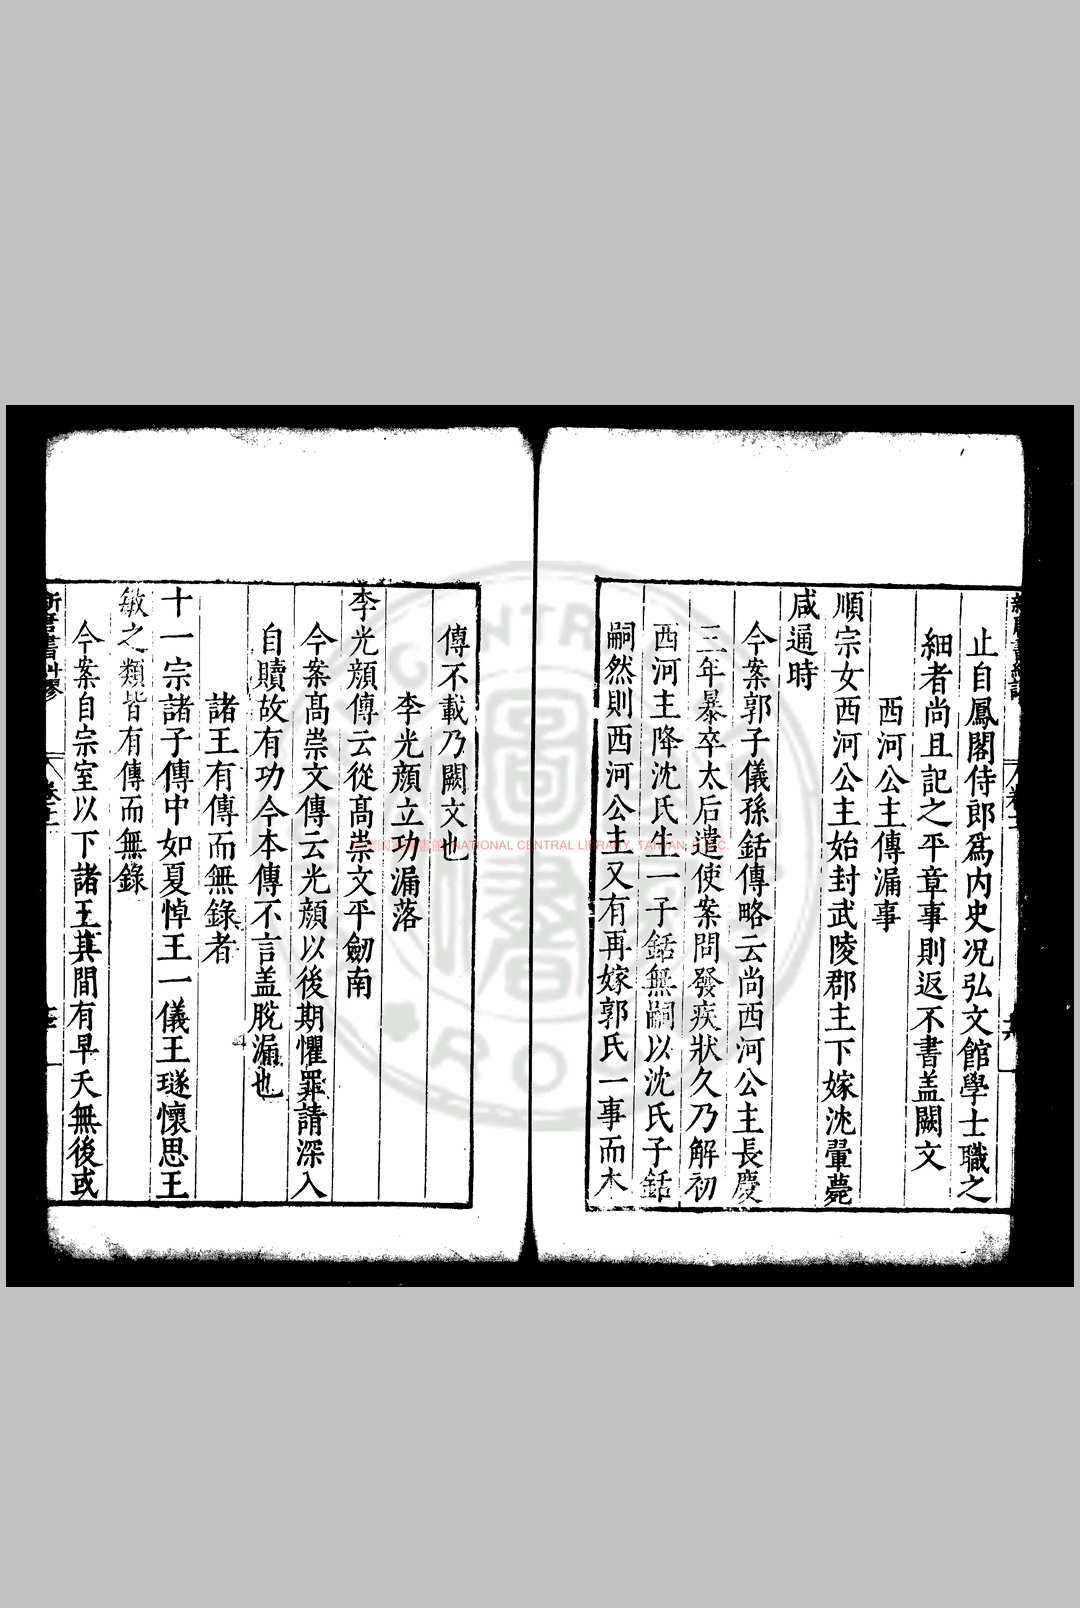 止自鳳閣侍郎爲内史况弘文館學士職之
細者尚且記之平章事則返不書盖闕文
西河公主傳漏事
順宗女西河公主始封武陵郡主下嫁沈翬薨
咸通時
今案郭子儀孫銛傳略云尚西河公主長慶
三年暴卒太后遣使案問發疾狀久乃解初
西河主降沈氏生一子銛無嗣以沈氏子銛
嗣然則西河公主又有再嫁郭氏一事而本
傳不載乃闕文也
李光顔立功漏落
李光顔傳云從髙崇文平劒南
今案髙崇文傳云光顔以後期懼罪請深入
自贖故有功今本傳不言盖脱漏也
諸王有傳而無錄者
十一宗諸子傳中如夏悼王一儀王璲懷思王
敏之類皆有傳而無錄
今案自宗室以下諸王其間有早夭無後或
新唐書糾謬
卷十二
國立國家圖書館 NATIONAL CENTRAL LIBRARY, TAIWAN, R.O.C.